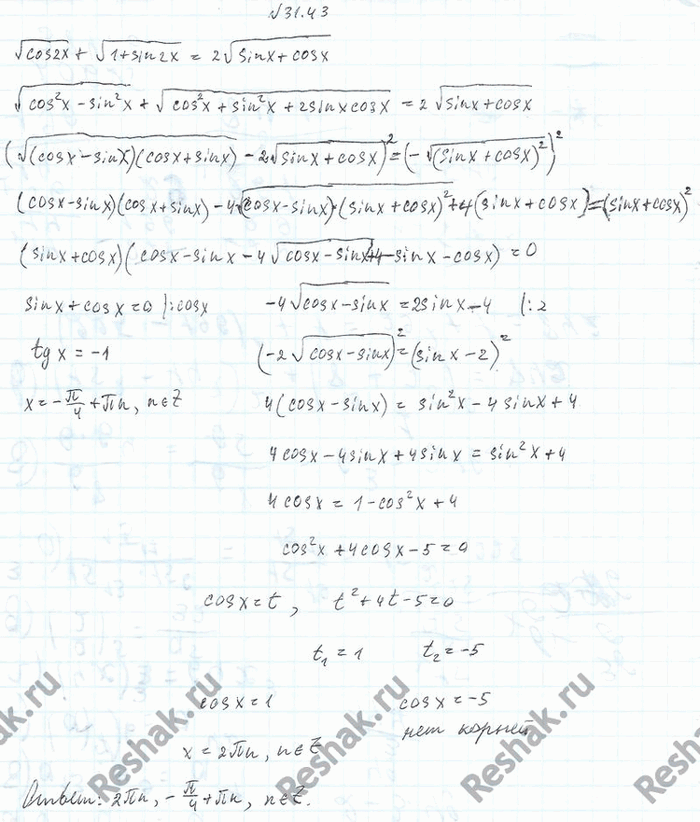 √31.43
√cos2x + √1+sin2x = 2√sinx+cosx
√cos²x-sin²x + √cos²x+sin²x+2sinxcosx = 2√sinx+cosx
(√(cosx-sinx)(cosx+sinx) - 2√sinx+cosx)² = (-√(sinx+cosx)²)²
(cosx-sinx)(cosx+sinx) - 4√(cosx-sinx)·(sinx+cosx)² + 4(sinx+cosx) = (sinx+cosx)²
(sinx+cosx)(cosx-sinx-4√cosx-sinx+4-sinx-cosx) = 0
sinx+cosx=0 |:cosx -4√cosx-sinx = 2sinx-4 |:2
tgx = -1 (-2√cosx-sinx)² = (sinx-2)²
x = -π/4 + πn, n∈Z 4(cosx-sinx) = sin²x-4sinx+4
4cosx-4sinx+4sinx = sin²x+4
4cosx = 1-cos²x+4
cos²x+4cosx-5=0
cosx=t, t²+4t-5=0
t₁=1 t₂=-5
cosx=1 cosx=-5
x=2πn, n∈Z нет корней
Ответ: 2πn, -π/4+πn, n∈Z.
Reshak.ru
Reshak.ru
Reshak.ru
Reshak.ru
Reshak.ru